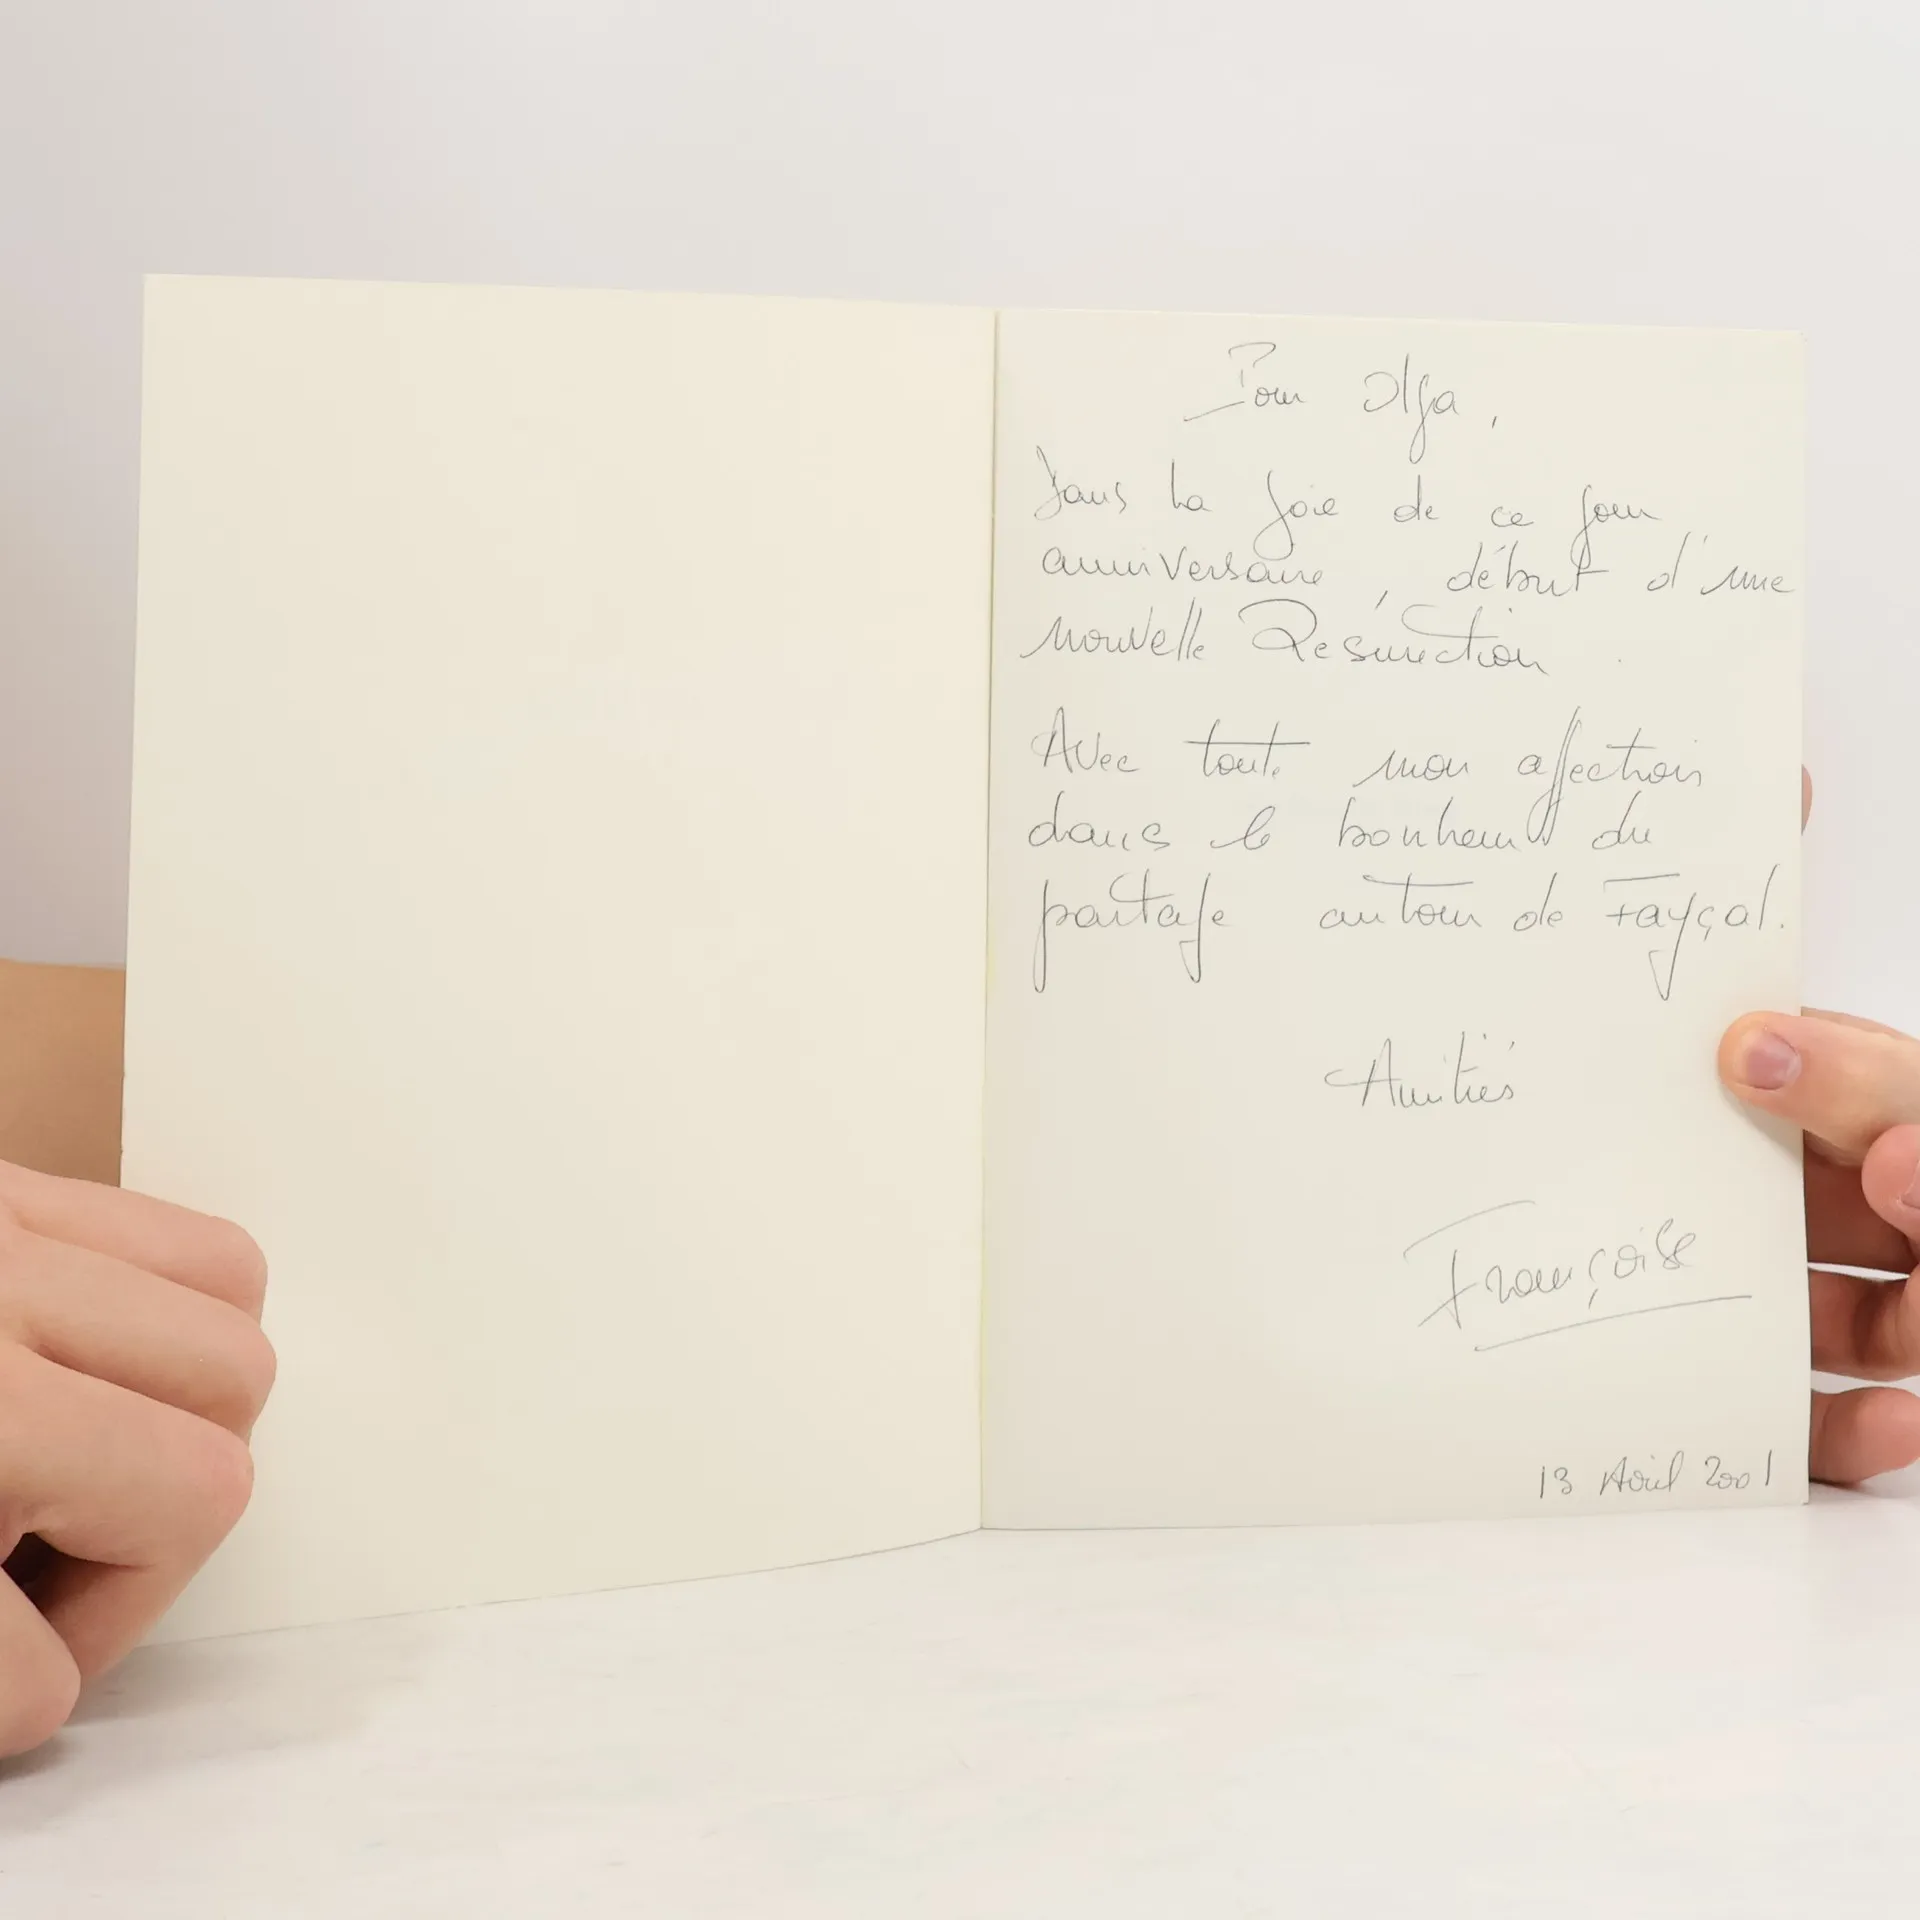 Pour Olga,
Dans la joie de ce jour
anniversaire, début d'une
nouvelle Résurrection.
Avec toute mon affection
dans le bonheur du
partage autour de Fayçal.
Amitiés
Françoise
13 Avril 2001